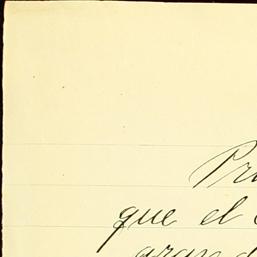 Pr
que el
gran d